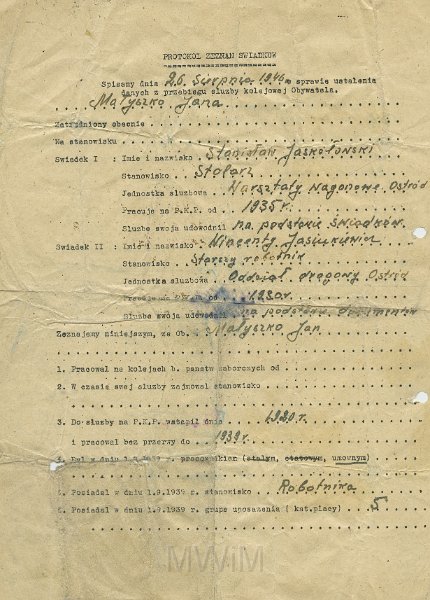 PROTOKOL ZEZNAN SWIADKOW
Spisany dnia 26 Sierpnia 1946 w sprawie ustalenia
danych z przebiegu sluzby kolejowej Obywatela.
Matyszko Jana
Zatrudniony obecnie
Na stanowisku
Swiadek I : Imie i nazwisko Stanisław Jaskołowski
Stanowisko Stolarz
Jednostka sluzbowa Warsztaty Wagonowe Ostród
Pracuje na P.K.P. od 1935 r.
Sluzbe swoja udowodnil na podstawie Swiadków
Swiadek II : Imie i nazwisko Wincenty
Stanowisko Starszy robotnik
Jednostka sluzbowa Oddział drogowy Ostród
od 1920 r.
Sluzbe swoja udowodnil na podstaw. dokumentów
Zeznajemy niniejszym, za Ob. Matyszko Jan
1. Pracowal na kolejach b. panstw zaborczych od
2. W czasie swej sluzby zajmowal stanowisko
3. Do sluzby na P.K.P. wstapil dnia 1920 r.
i pracowal bez przerwy do 1939 r.
4. Byl w dniu 1.9.1939 r. pracownikiem (stalym, etatowym, umownym)
5. Posiadal w dniu 1.9.1939 r. stanowisko Robotnika
6. Posiadal w dniu 1.9.1939 r. grupe uposazenia ( kat.placy) 5
MWiM